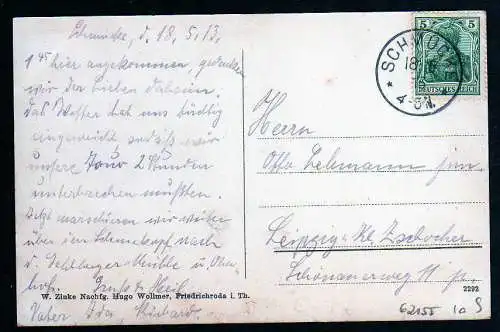 Schmücke, d. 18.5.13.
1⁴⁵ hier angekommen, gedenken
wir der Lieben daheim.
Das Wetter hat uns tüchtig
eingeweicht, sodaß wir
unsere Tour 2 Stunden
unterbrechen mußten.
Jetzt marschieren wir weiter
über den Schneekopf nach
d. Mühle u.
Gruß & Heil
Vater Ida Richard.
W. Zinke Nachfg. Hugo Wollmer, Friedrichroda i. Th.
5 5
DEUTSCHES REICH
SCHMÜCKE
18
* 4-5N.
Herrn
Otto Lehmann jun.
Leipzig-Kl. Zschocher
Schönauerweg 11 p.
2292
62155 10 S